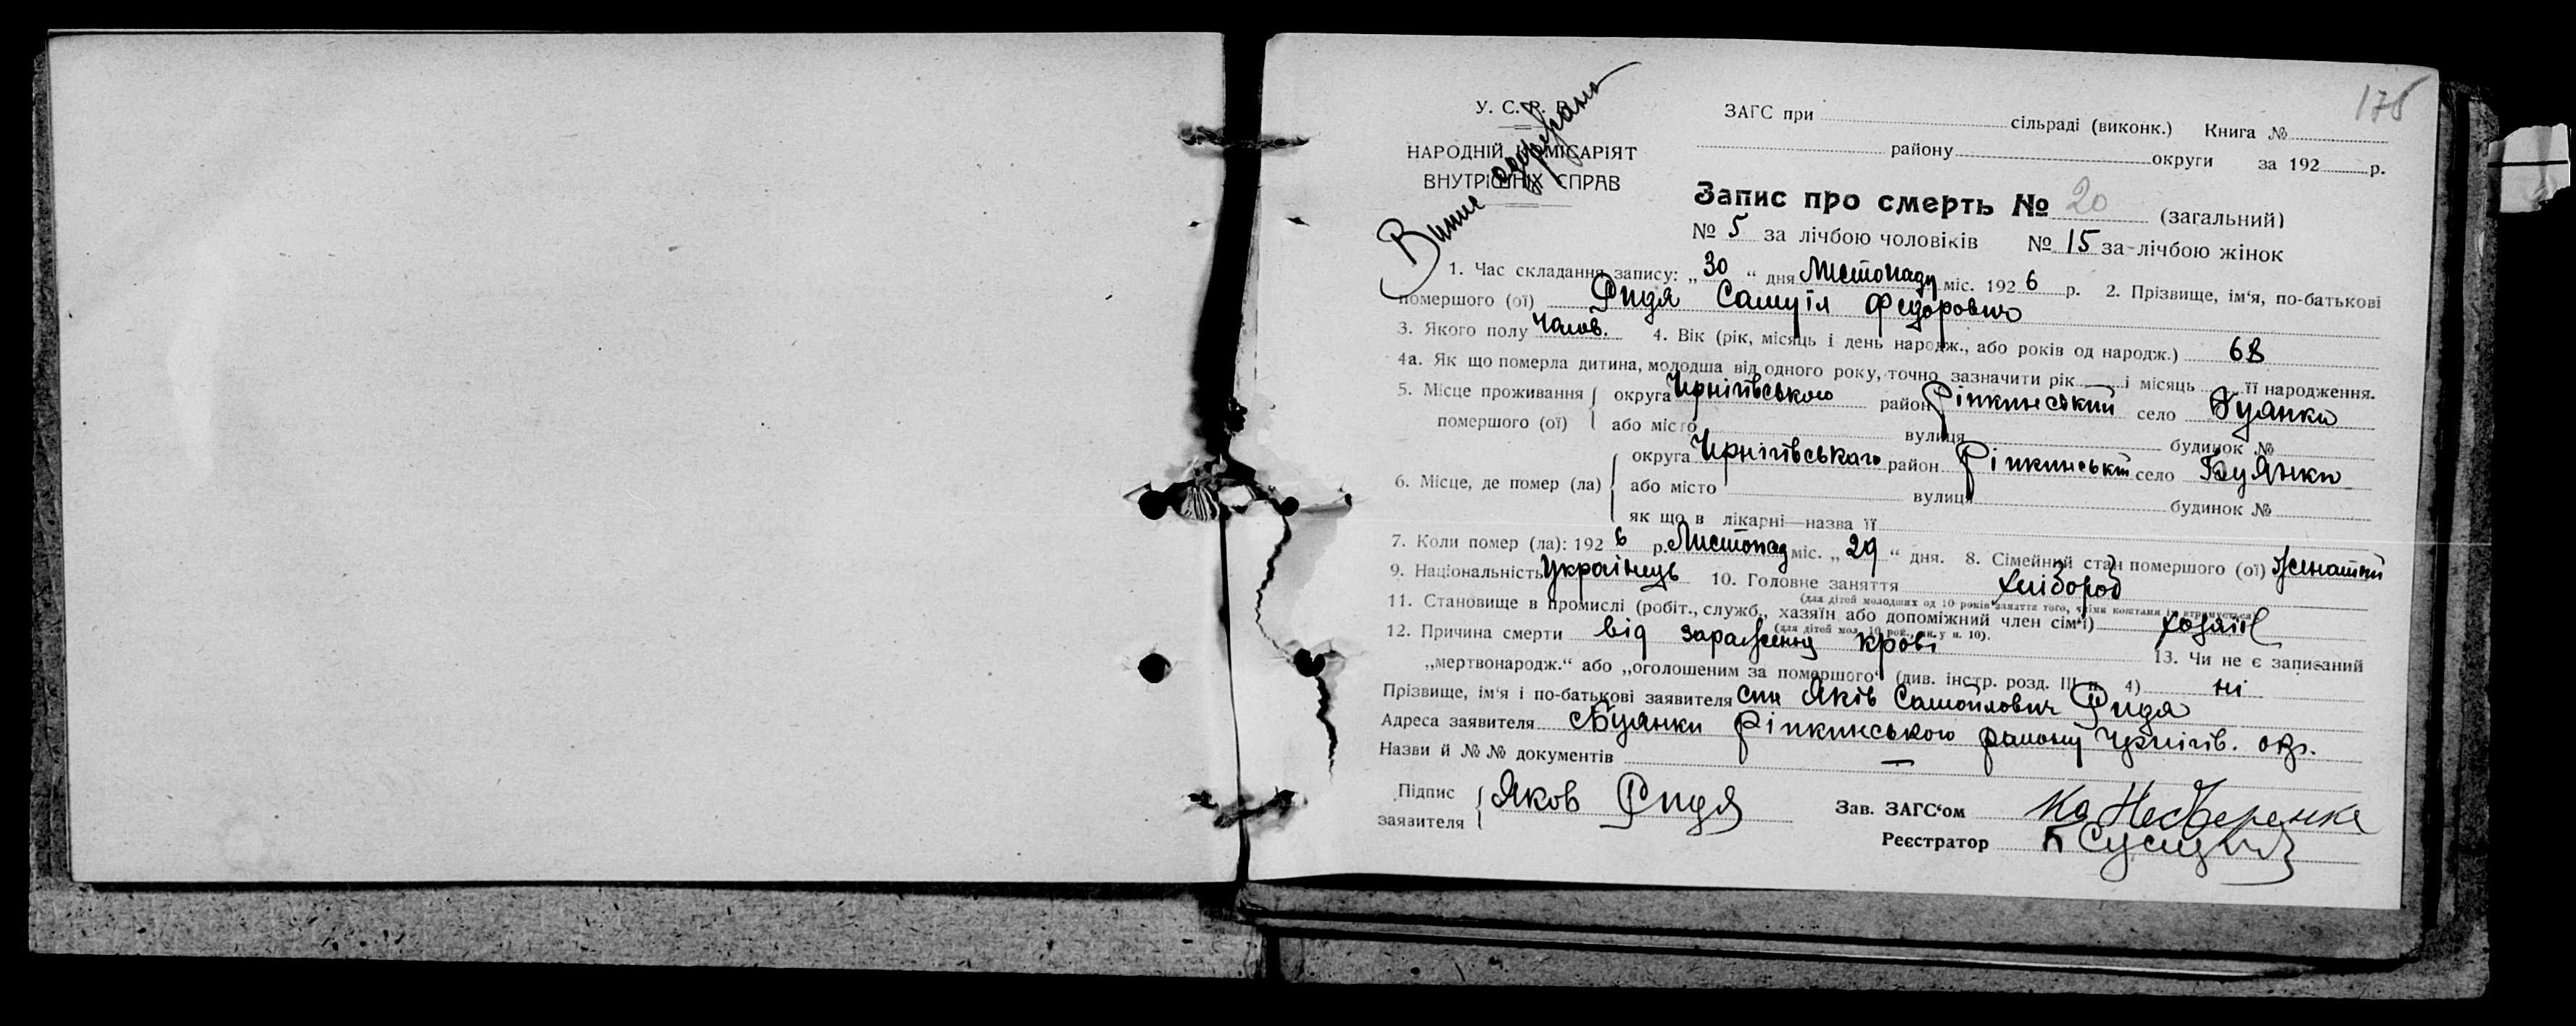 175
У. С. Р. Р.
НАРОДНІЙ КОМІСАРІЯТ
ВНУТРІШНІХ СПРАВ
Випис одержано
ЗАГС при сільраді (виконк.) Книга №
району округи за 192 р.
Запис про смерть № 20 (загальний)
№ 5 за лічбою чоловіків № 15 за лічбою жінок
1. Час складання запису: „30“ дня Листопаду міс. 1926 р. 2. Прізвище, ім‘я, по-батькові
помершого (ої) Ридя Самуїл Федорович
3. Якого полу Чолов. 4. Вік (рік, місяць і день народж., або років од народж.) 68
4а. Як що померла дитина, молодша від одного року, точно зазначити рік і місяць її народження.
5. Місце проживання округа Чернігівського район Ріпкинський село Буянки
помершого (ої) або місто вулиця будинок №
округа Чернігівського район Ріпкинський село Буянки
6. Місце, де помер (ла) або місто вулиця будинок №
як що в лікарні—назва її
7. Коли помер (ла): 1926 р. Листопад міс. „29“ дня. 8. Сімейний стан помершого (ої) Женатий
9. Національність Українець 10. Головне заняття Хлібороб
(для дітей молодших од 10 років заняття того, чіїми коштами їх утримується)
11. Становище в промислі (робіт., служб., хазяїн або допоміжний член сім‘ї) хозяїн
(для дітей мол. 10 рок., як у п. 10).
12. Причина смерти від зараженну крові 13. Чи не є записаний
„мертвонародж.“ або „оголошеним за помершого“ (див. інстр. розд. III п. 4) ні
Прізвище, ім‘я і по-батькові заявителя син Яків Самойлович Ридя
Адреса заявителя с Буянки Ріпкинського району Чернігів. окр.
Назви й №№ документів —
Підпис заявителя Яков Ридя
Зав. ЗАГС‘ом
Реєстратор